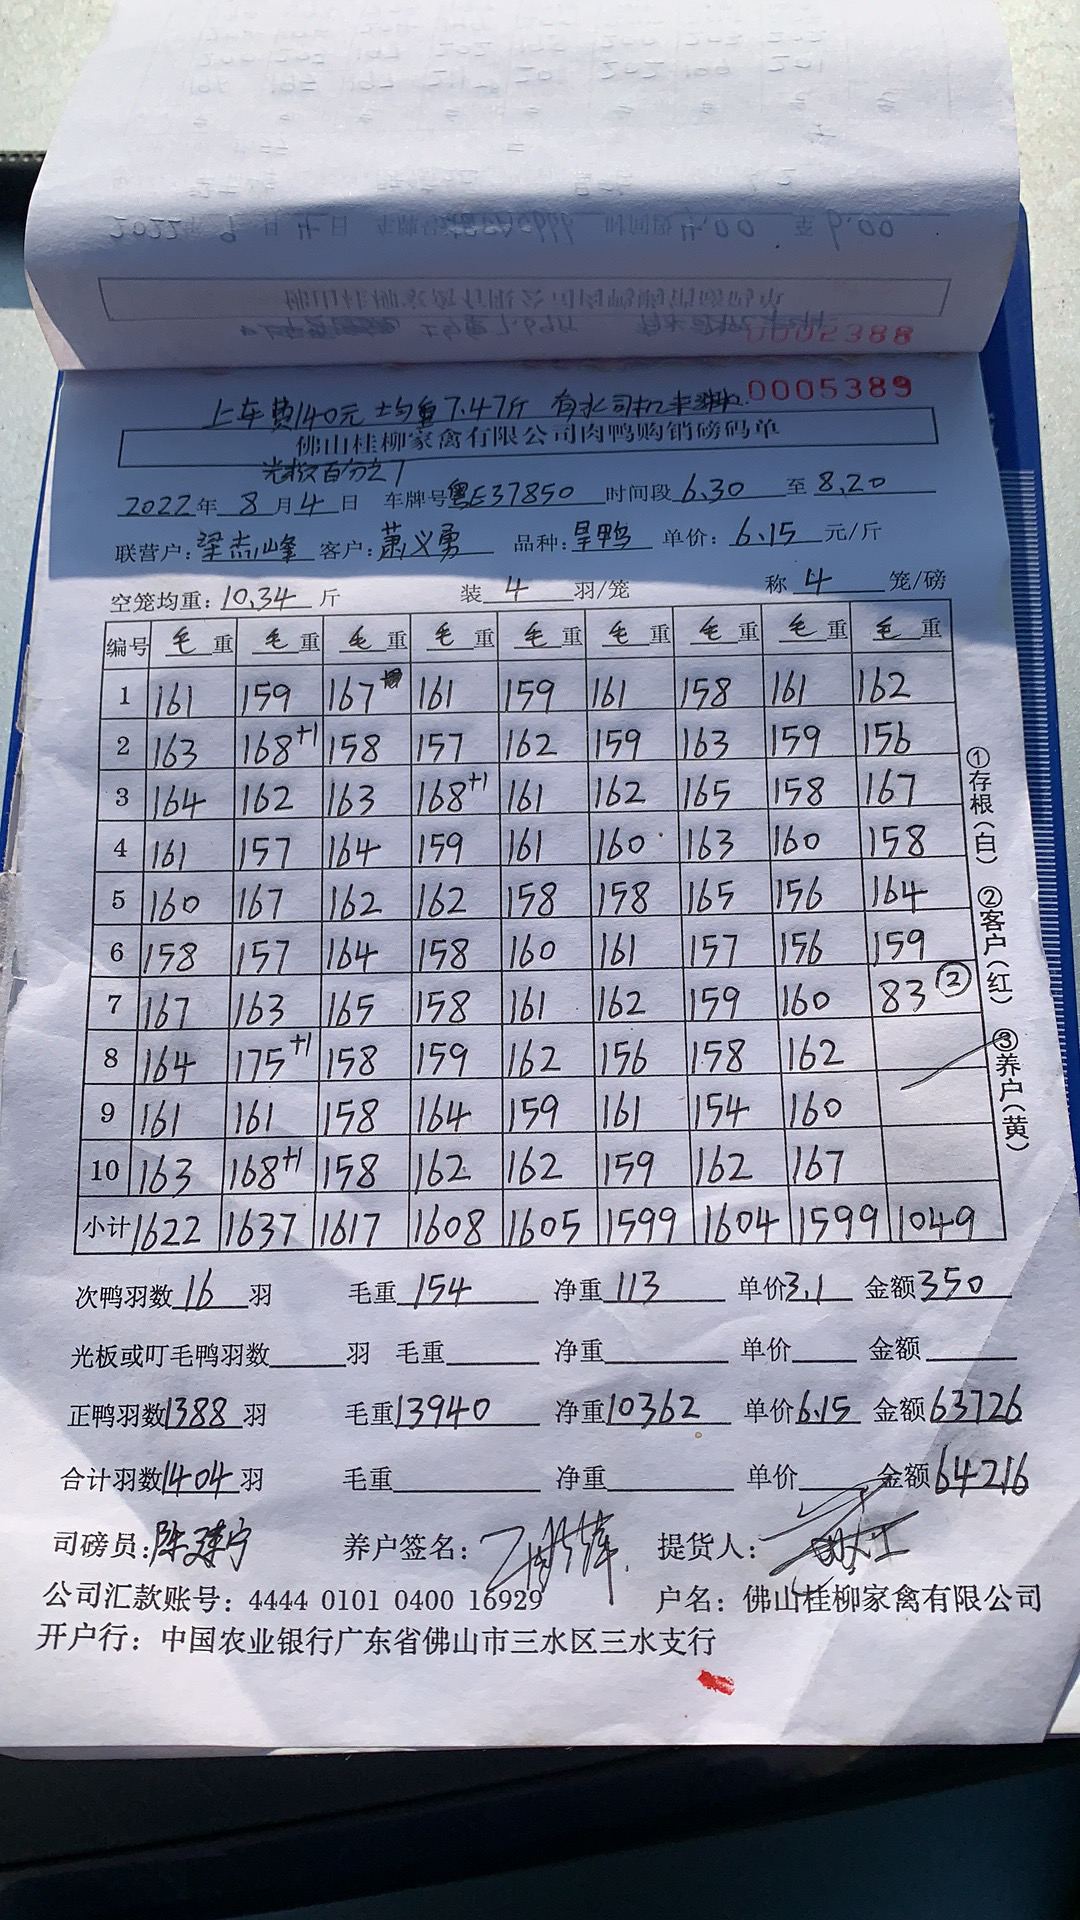 0005389
上车费140元 均重7.47斤 有水司机未淋
佛山桂柳家禽有限公司肉鸭购销磅码单
光板百分之1
2022年 8月4日 车牌号粤E37850 时间段6.30 至8.20
联营户:梁志峰 客户:萧义勇 品种:旱鸭 单价:6.15元/斤
空笼均重:10.34斤 装4羽/笼 称4笼/磅
编号 毛重 毛重 毛重 毛重 毛重 毛重 毛重 毛重 毛重
1 161 159 167 161 159 161 158 161 162
2 163 168+1 158 157 162 159 163 159 156
3 164 162 163 168+1 161 162 165 158 167
4 161 157 164 159 161 160 163 160 158
5 160 167 162 162 158 158 165 156 164
6 158 157 164 158 160 161 157 156 159
7 167 163 165 158 161 162 159 160 83②
8 164 175+1 158 159 162 156 158 162
9 161 161 158 164 159 161 154 160
10 163 168+1 158 162 162 159 162 167
小计 1622 1637 1617 1608 1605 1599 1604 1599 1049
①存根(白) ②客户(红) ③养户(黄)
次鸭羽数16羽 毛重154 净重113 单价3.1 金额350
光板或叮毛鸭羽数 羽 毛重 净重 单价 金额
正鸭羽数1388羽 毛重13940 净重10362 单价6.15 金额63726
合计羽数1404羽 毛重 净重 单价 金额64216
司磅员:陈建宁 养户签名: 提货人:
公司汇款账号:4444 0101 0400 16929 户名:佛山桂柳家禽有限公司
开户行:中国农业银行广东省佛山市三水区三水支行